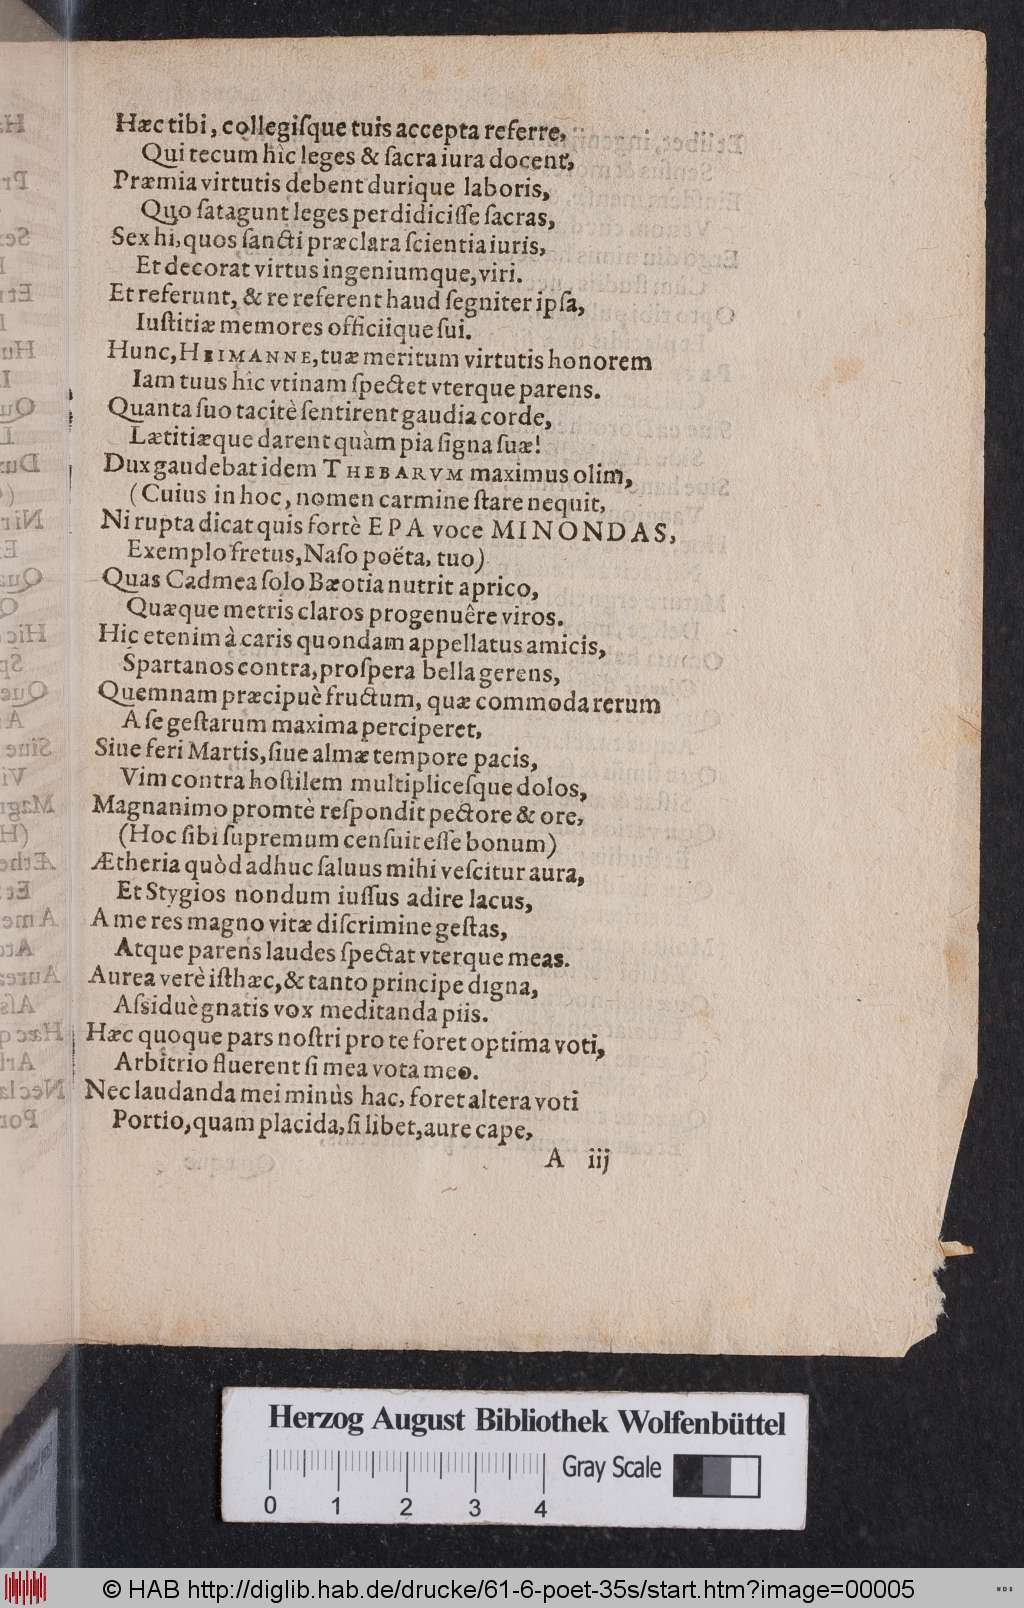 Hæc tibi, collegiſque tuis accepta referre,
Qui tecum hîc leges & ſacra iura docent,
Præmia virtutis debent durique laboris,
Quo ſatagunt leges perdidiciſſe ſacras,
Sex hi, quos ſancti præclara ſcientia iuris,
Et decorat virtus ingeniumque, viri.
Et referunt, & re referent haud ſegniter ipſa,
Iuſtitiæ memores officiique ſui.
Hunc, HEIMANNE, tuæ meritum virtutis honorem
Iam tuus hîc vtinam ſpectet vterque parens.
Quanta ſuo tacitè ſentirent gaudia corde,
Lætitiæque darent quàm pia ſigna ſuæ!
Dux gaudebat idem THEBARVM maximus olim,
(Cuius in hoc, nomen carmine ſtare nequit,
Ni rupta dicat quis fortè EPA voce MINONDAS,
Exemplo fretus, Naſo poëta, tuo)
Quas Cadmea ſolo Bæotia nutrit aprico,
Quæque metris claros progenuêre viros.
Hic etenim à caris quondam appellatus amicis,
Spartanos contra, proſpera bella gerens,
Quemnam præcipuè fructum, quæ commoda rerum
A ſe geſtarum maxima perciperet,
Siue feri Martis, ſiue almæ tempore pacis,
Vim contra hoſtilem multipliceſque dolos,
Magnanimo promtè reſpondit pectore & ore,
(Hoc ſibi ſupremum cenſuit eſſe bonum)
Ætheria quòd adhuc ſaluus mihi veſcitur aura,
Et Stygios nondum iuſſus adire lacus,
A me res magno vitæ diſcrimine geſtas,
Atque parens laudes ſpectat vterque meas.
Aurea verè iſthæc, & tanto principe digna,
Aſsiduè gnatis vox meditanda piis.
Hæc quoque pars noſtri pro te foret optima voti,
Arbitrio fluerent ſi mea vota meo.
Nec laudanda mei minùs hac, foret altera voti
Portio, quam placida, ſi libet, aure cape,
A iij
Herzog August Bibliothek Wolfenbüttel
Gray Scale
0 1 2 3 4
© HAB http://diglib.hab.de/drucke/61-6-poet-35s/start.htm?image=00005